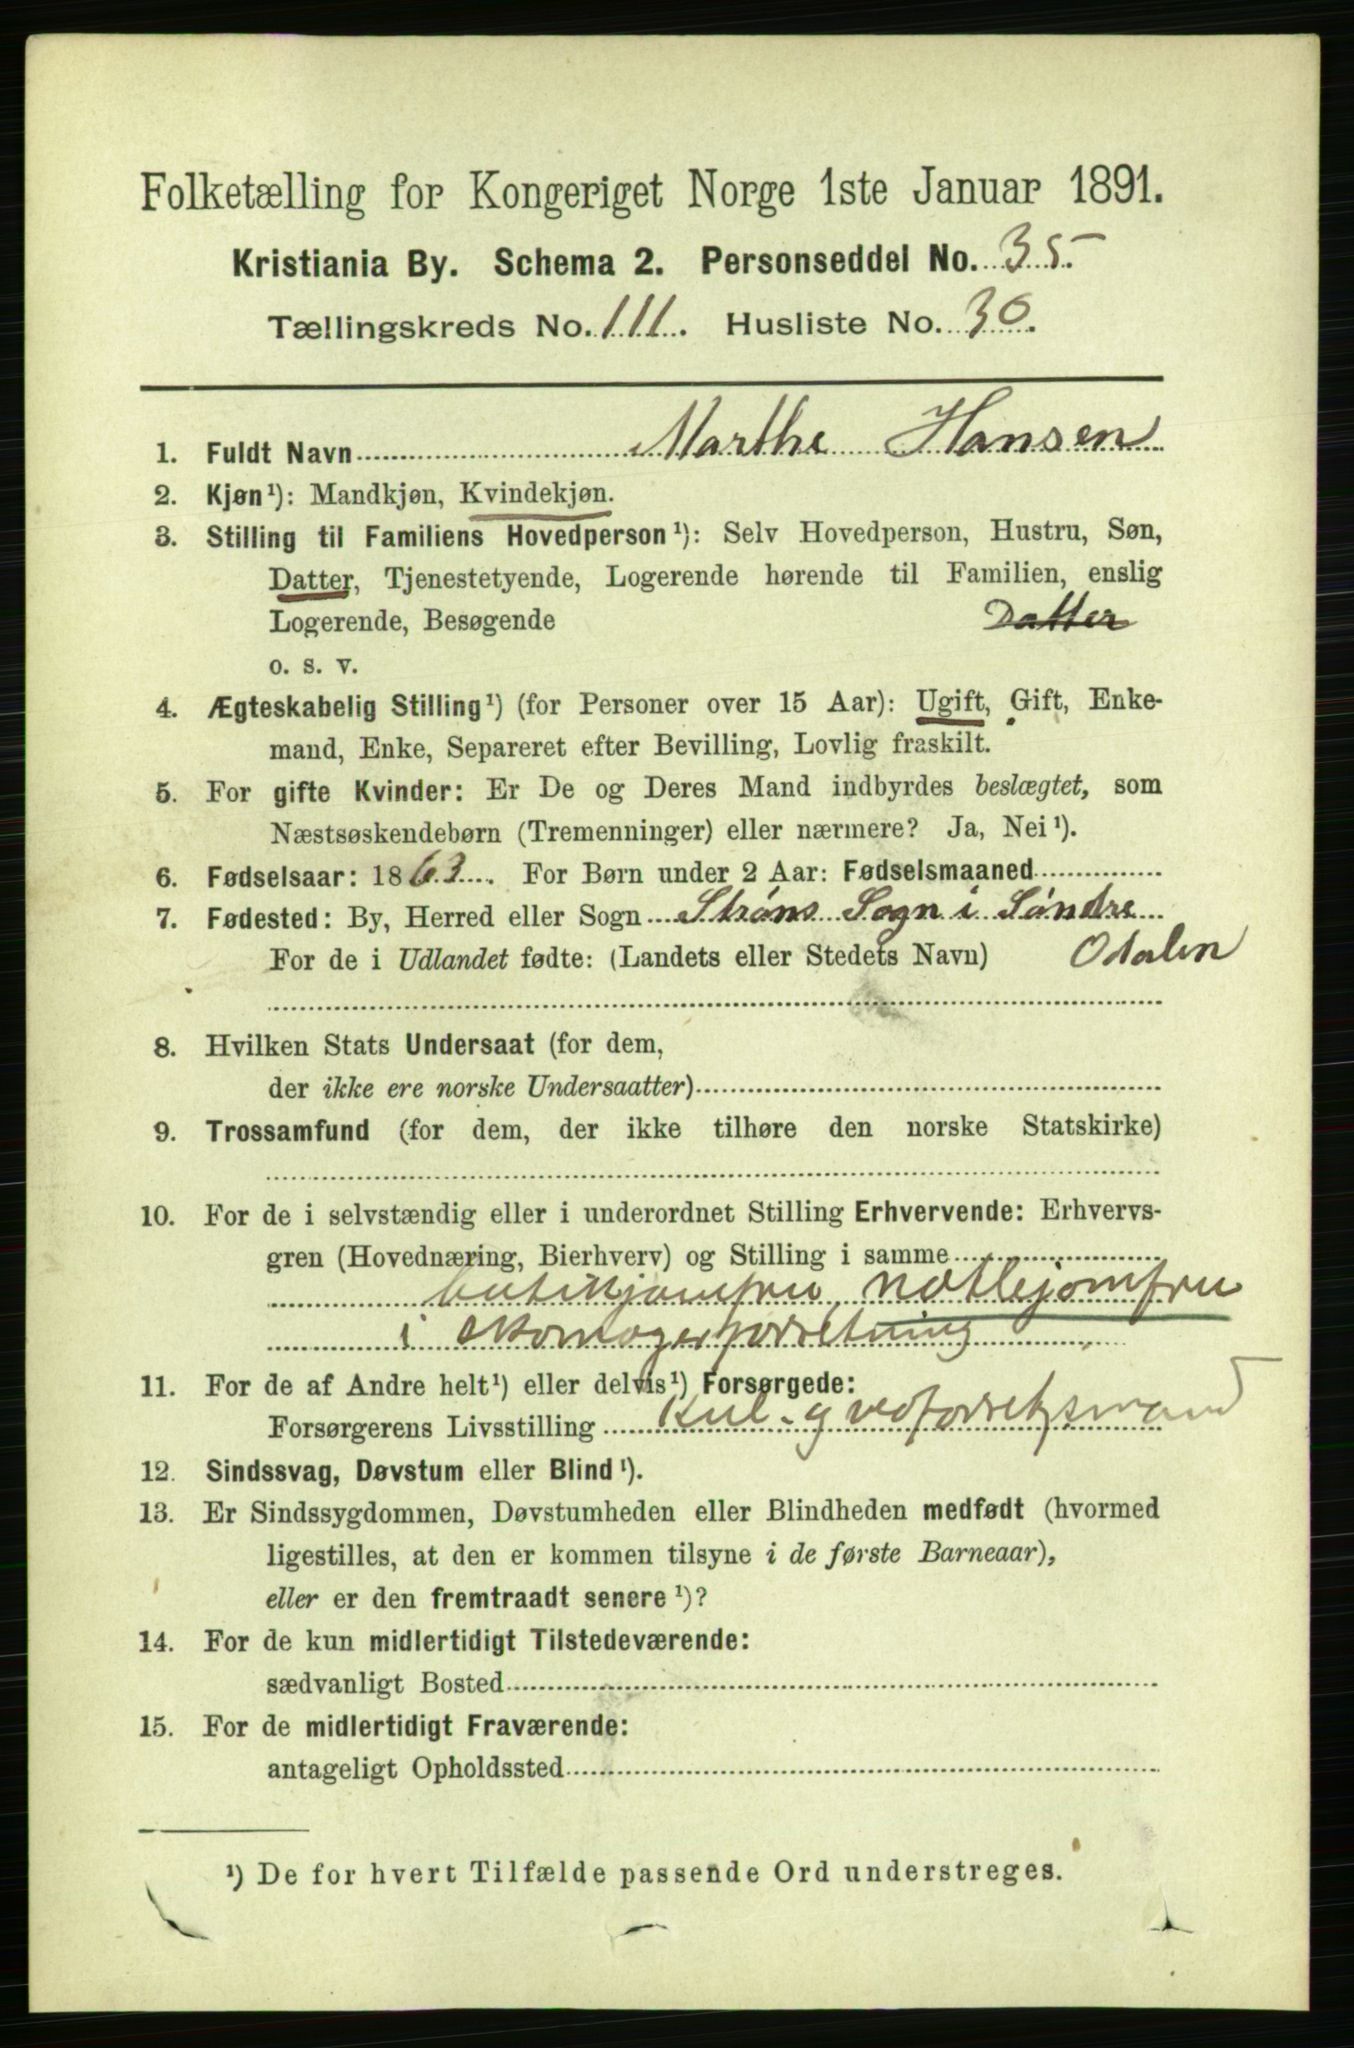 Folketælling for Kongeriget Norge 1ste Januar 1891.
Kristiania By. Schema 2. Personseddel No. 35.
Tællingskreds No. 111. Husliste No. 30.
1. Fuldt Navn Marthe Hansen
2. Kjøn¹): Mandkjøn, Kvindekjøn.
3. Stilling til Familiens Hovedperson¹): Selv Hovedperson, Hustru, Søn,
Datter, Tjenestetyende, Logerende hørende til Familien, enslig
Logerende, Besøgende Datter
o. s. v.
4. Ægteskabelig Stilling¹) (for Personer over 15 Aar): Ugift, Gift, Enke-
mand, Enke, Separeret efter Bevilling, Lovlig fraskilt.
5. For gifte Kvinder: Er De og Deres Mand indbyrdes beslægtet, som
Næstsøskendebørn (Tremenninger) eller nærmere? Ja, Nei¹).
6. Fødselsaar: 1863. For Børn under 2 Aar: Fødselsmaaned
7. Fødested: By, Herred eller Sogn Strøms Sogn i Søndre
For de i Udlandet fødte: (Landets eller Stedets Navn) Odalen
8. Hvilken Stats Undersaat (for dem,
der ikke ere norske Undersaatter)
9. Trossamfund (for dem, der ikke tilhøre den norske Statskirke)
10. For de i selvstændig eller i underordnet Stilling Erhvervende: Erhvervs-
gren (Hovednæring, Bierhverv) og Stilling i samme
butikjomfru, natlejomfru
i skomagerforretning
11. For de af Andre helt¹) eller delvis¹) Forsørgede:
Forsørgerens Livsstilling Kul- g vedforretgsmand
12. Sindssvag, Døvstum eller Blind¹).
13. Er Sindssygdommen, Døvstumheden eller Blindheden medfødt (hvormed
ligestilles, at den er kommen tilsyne i de første Barneaar),
eller er den fremtraadt senere¹)?
14. For de kun midlertidigt Tilstedeværende:
sædvanligt Bosted
15. For de midlertidigt Fraværende:
antageligt Opholdssted
¹) De for hvert Tilfælde passende Ord understreges.